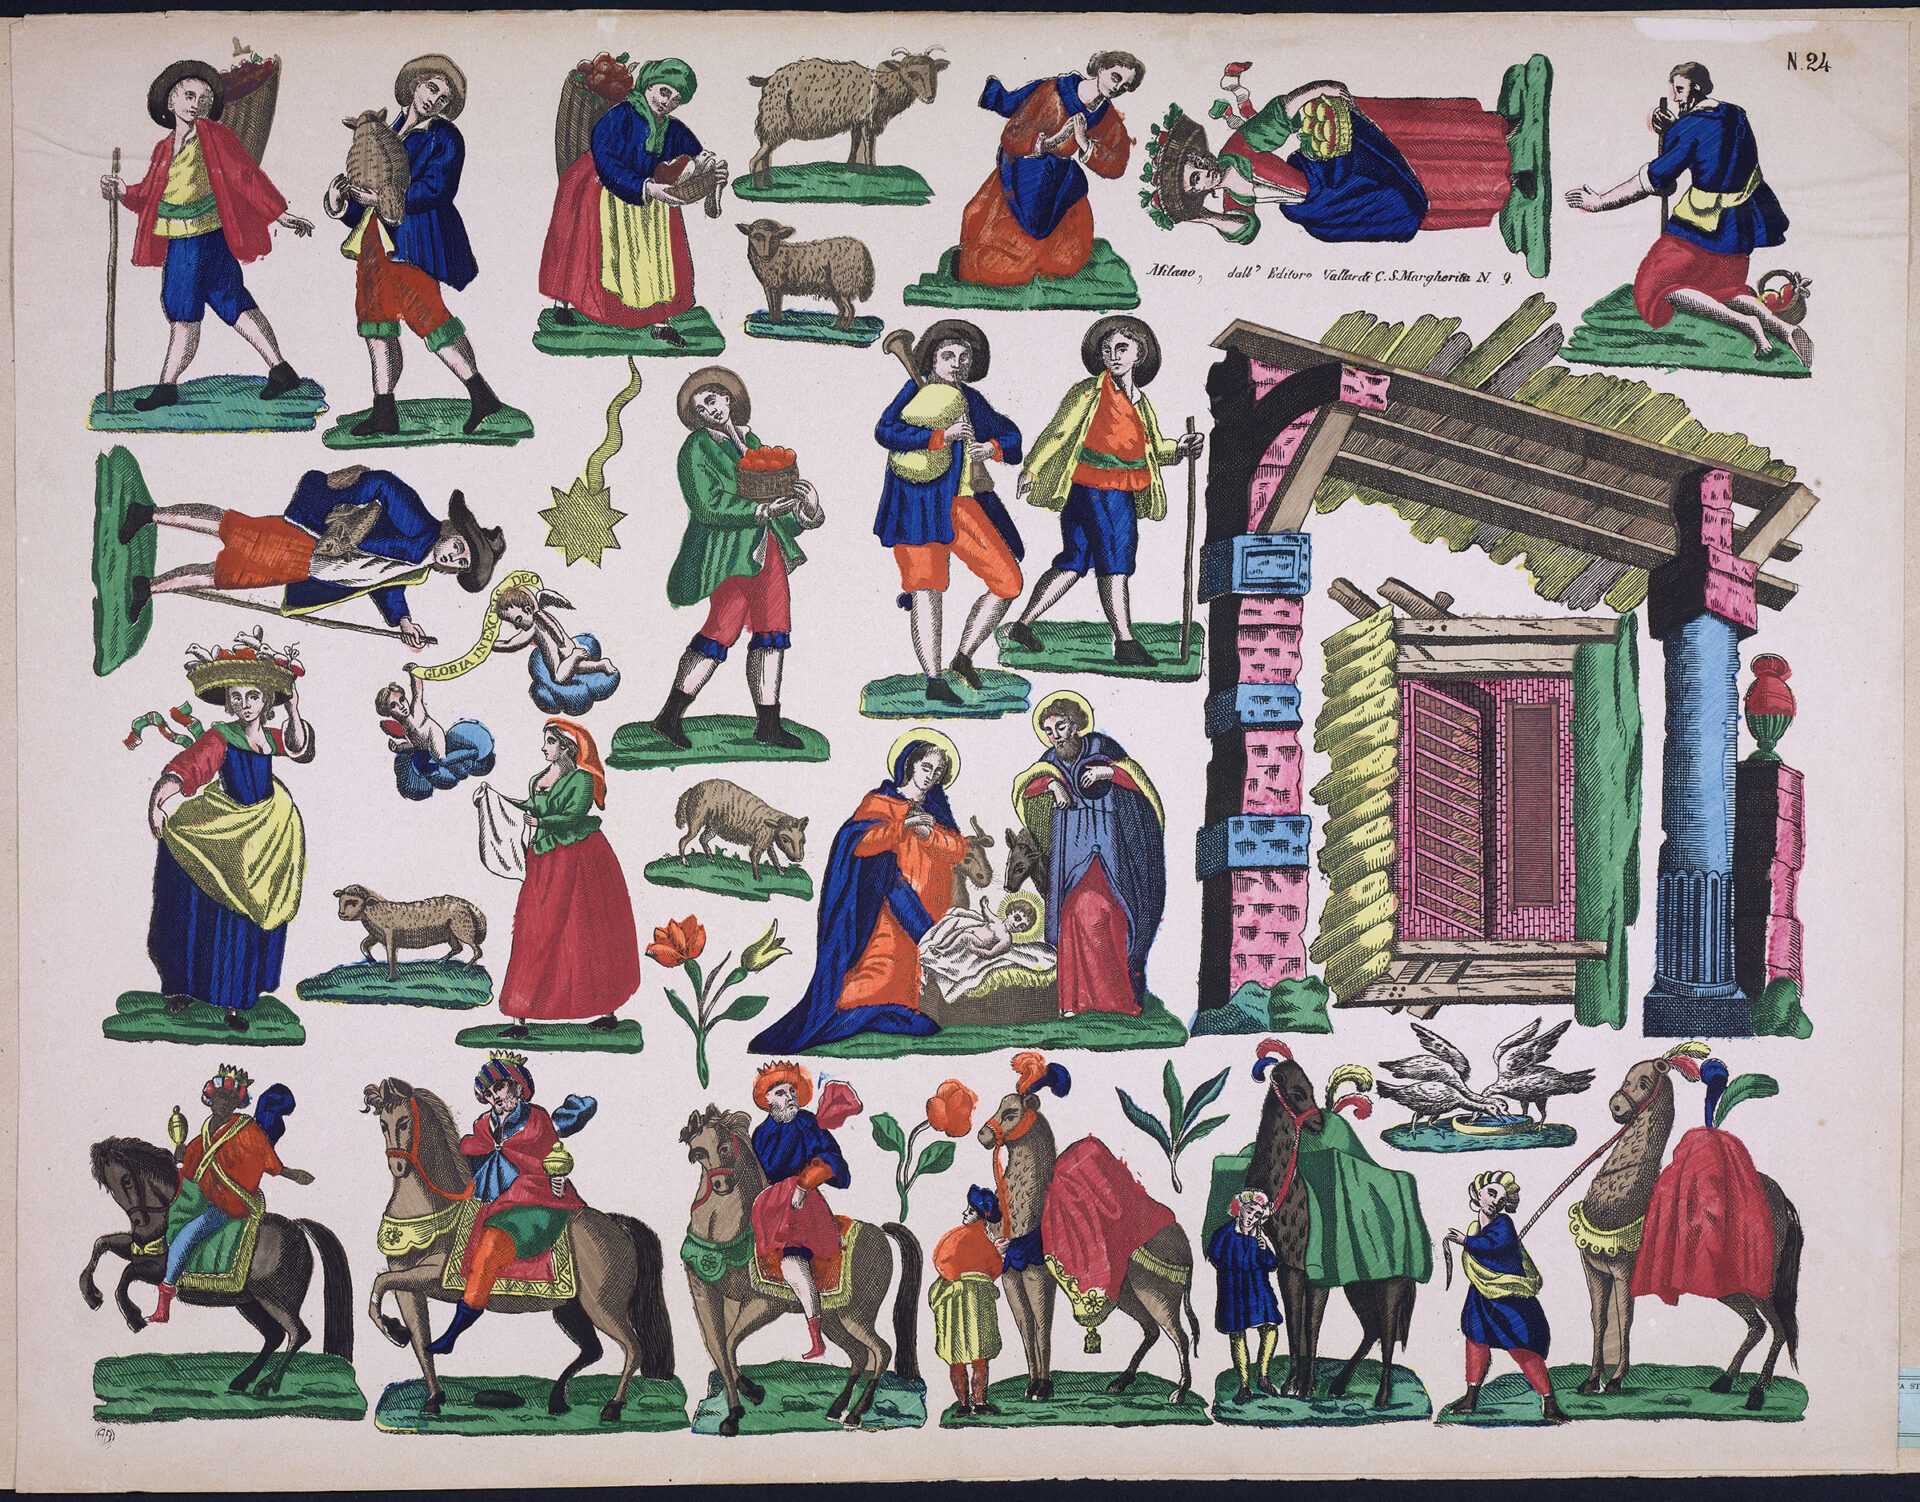 N. 24
Milano, dall' Editore Vallardi C. S. Margherita N. 9.
GLORIA IN EXCELSIS DEO
AB